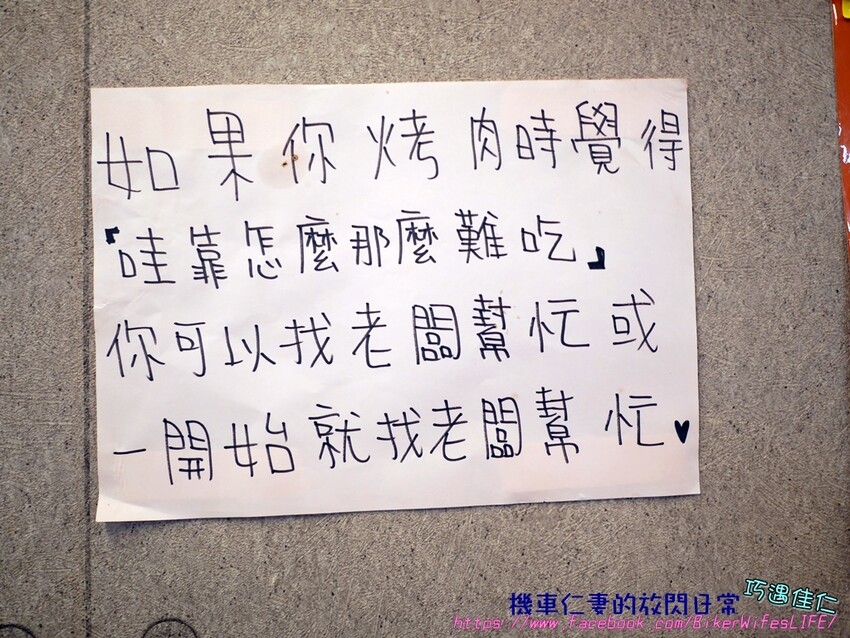 如果你烤肉時覺得
『哇靠怎麼那麼難吃』
你可以找老闆幫忙或
一開始就找老闆幫忙♥
機車仁妻的放閃日常
巧遇佳仁
https://www.facebook.com/BikerWifesLIFE/